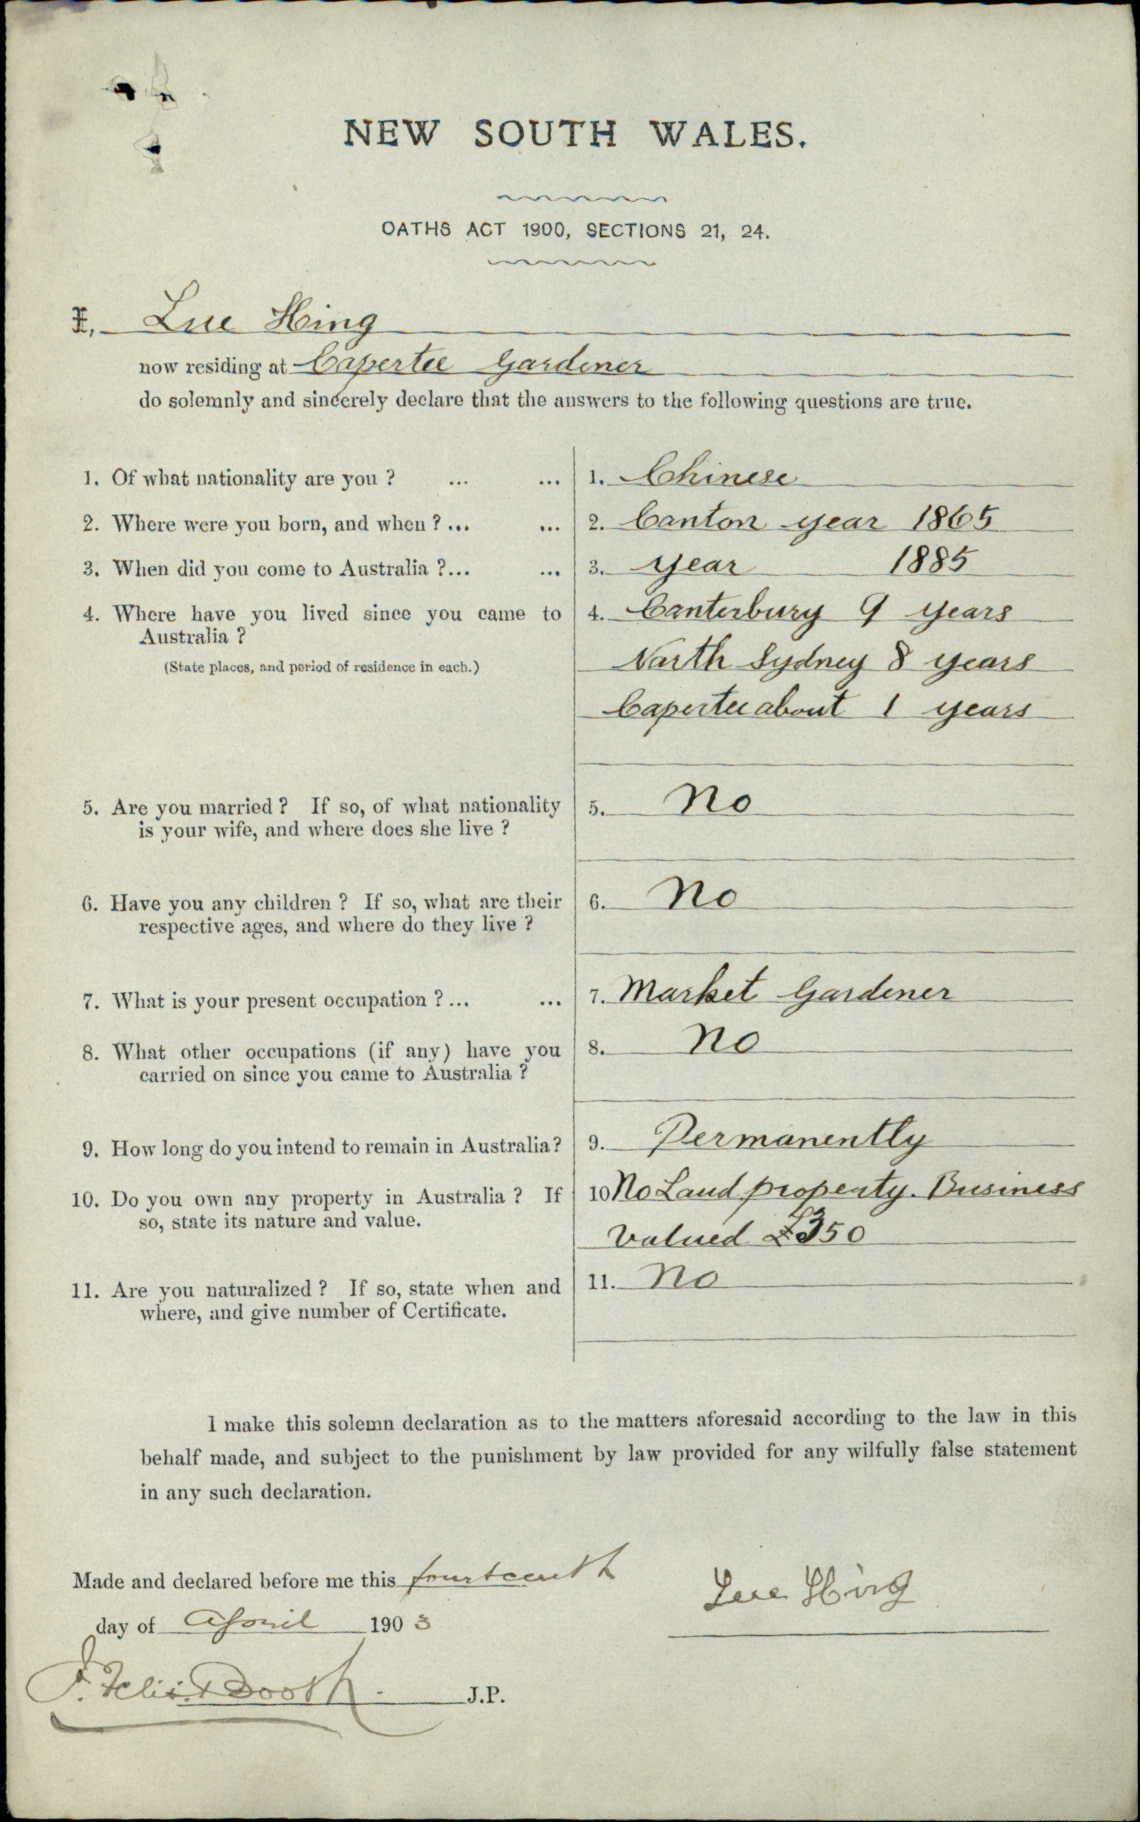 NEW SOUTH WALES.
OATHS ACT 1900, SECTIONS 21, 24.
I, Lue Hing
now residing at Capertee Gardener
do solemnly and sincerely declare that the answers to the following questions are true.
1. Of what nationality are you ? ... ... 1. Chinese
2. Where were you born, and when ? ... ... 2. Canton year 1865
3. When did you come to Australia ?... ... 3. year 1885
4. Where have you lived since you came to 4. Canterbury 9 years
Australia ?
(State places, and period of residence in each.) North Sydney 8 years
Capertee about 1 years
5. Are you married ? If so, of what nationality 5. No
is your wife, and where does she live ?
6. Have you any children ? If so, what are their 6. No
respective ages, and where do they live ?
7. What is your present occupation ? ... ... 7. Market Gardener
8. What other occupations (if any) have you 8. No
carried on since you came to Australia ?
9. How long do you intend to remain in Australia? 9. Permanently
10. Do you own any property in Australia ? If 10 No Land property. Business
so, state its nature and value. Valued £350
11. Are you naturalized ? If so, state when and 11. No
where, and give number of Certificate.
I make this solemn declaration as to the matters aforesaid according to the law in this
behalf made, and subject to the punishment by law provided for any wilfully false statement
in any such declaration.
Made and declared before me this fourteenth
Lue Hing
day of April 1903
Booth J.P.